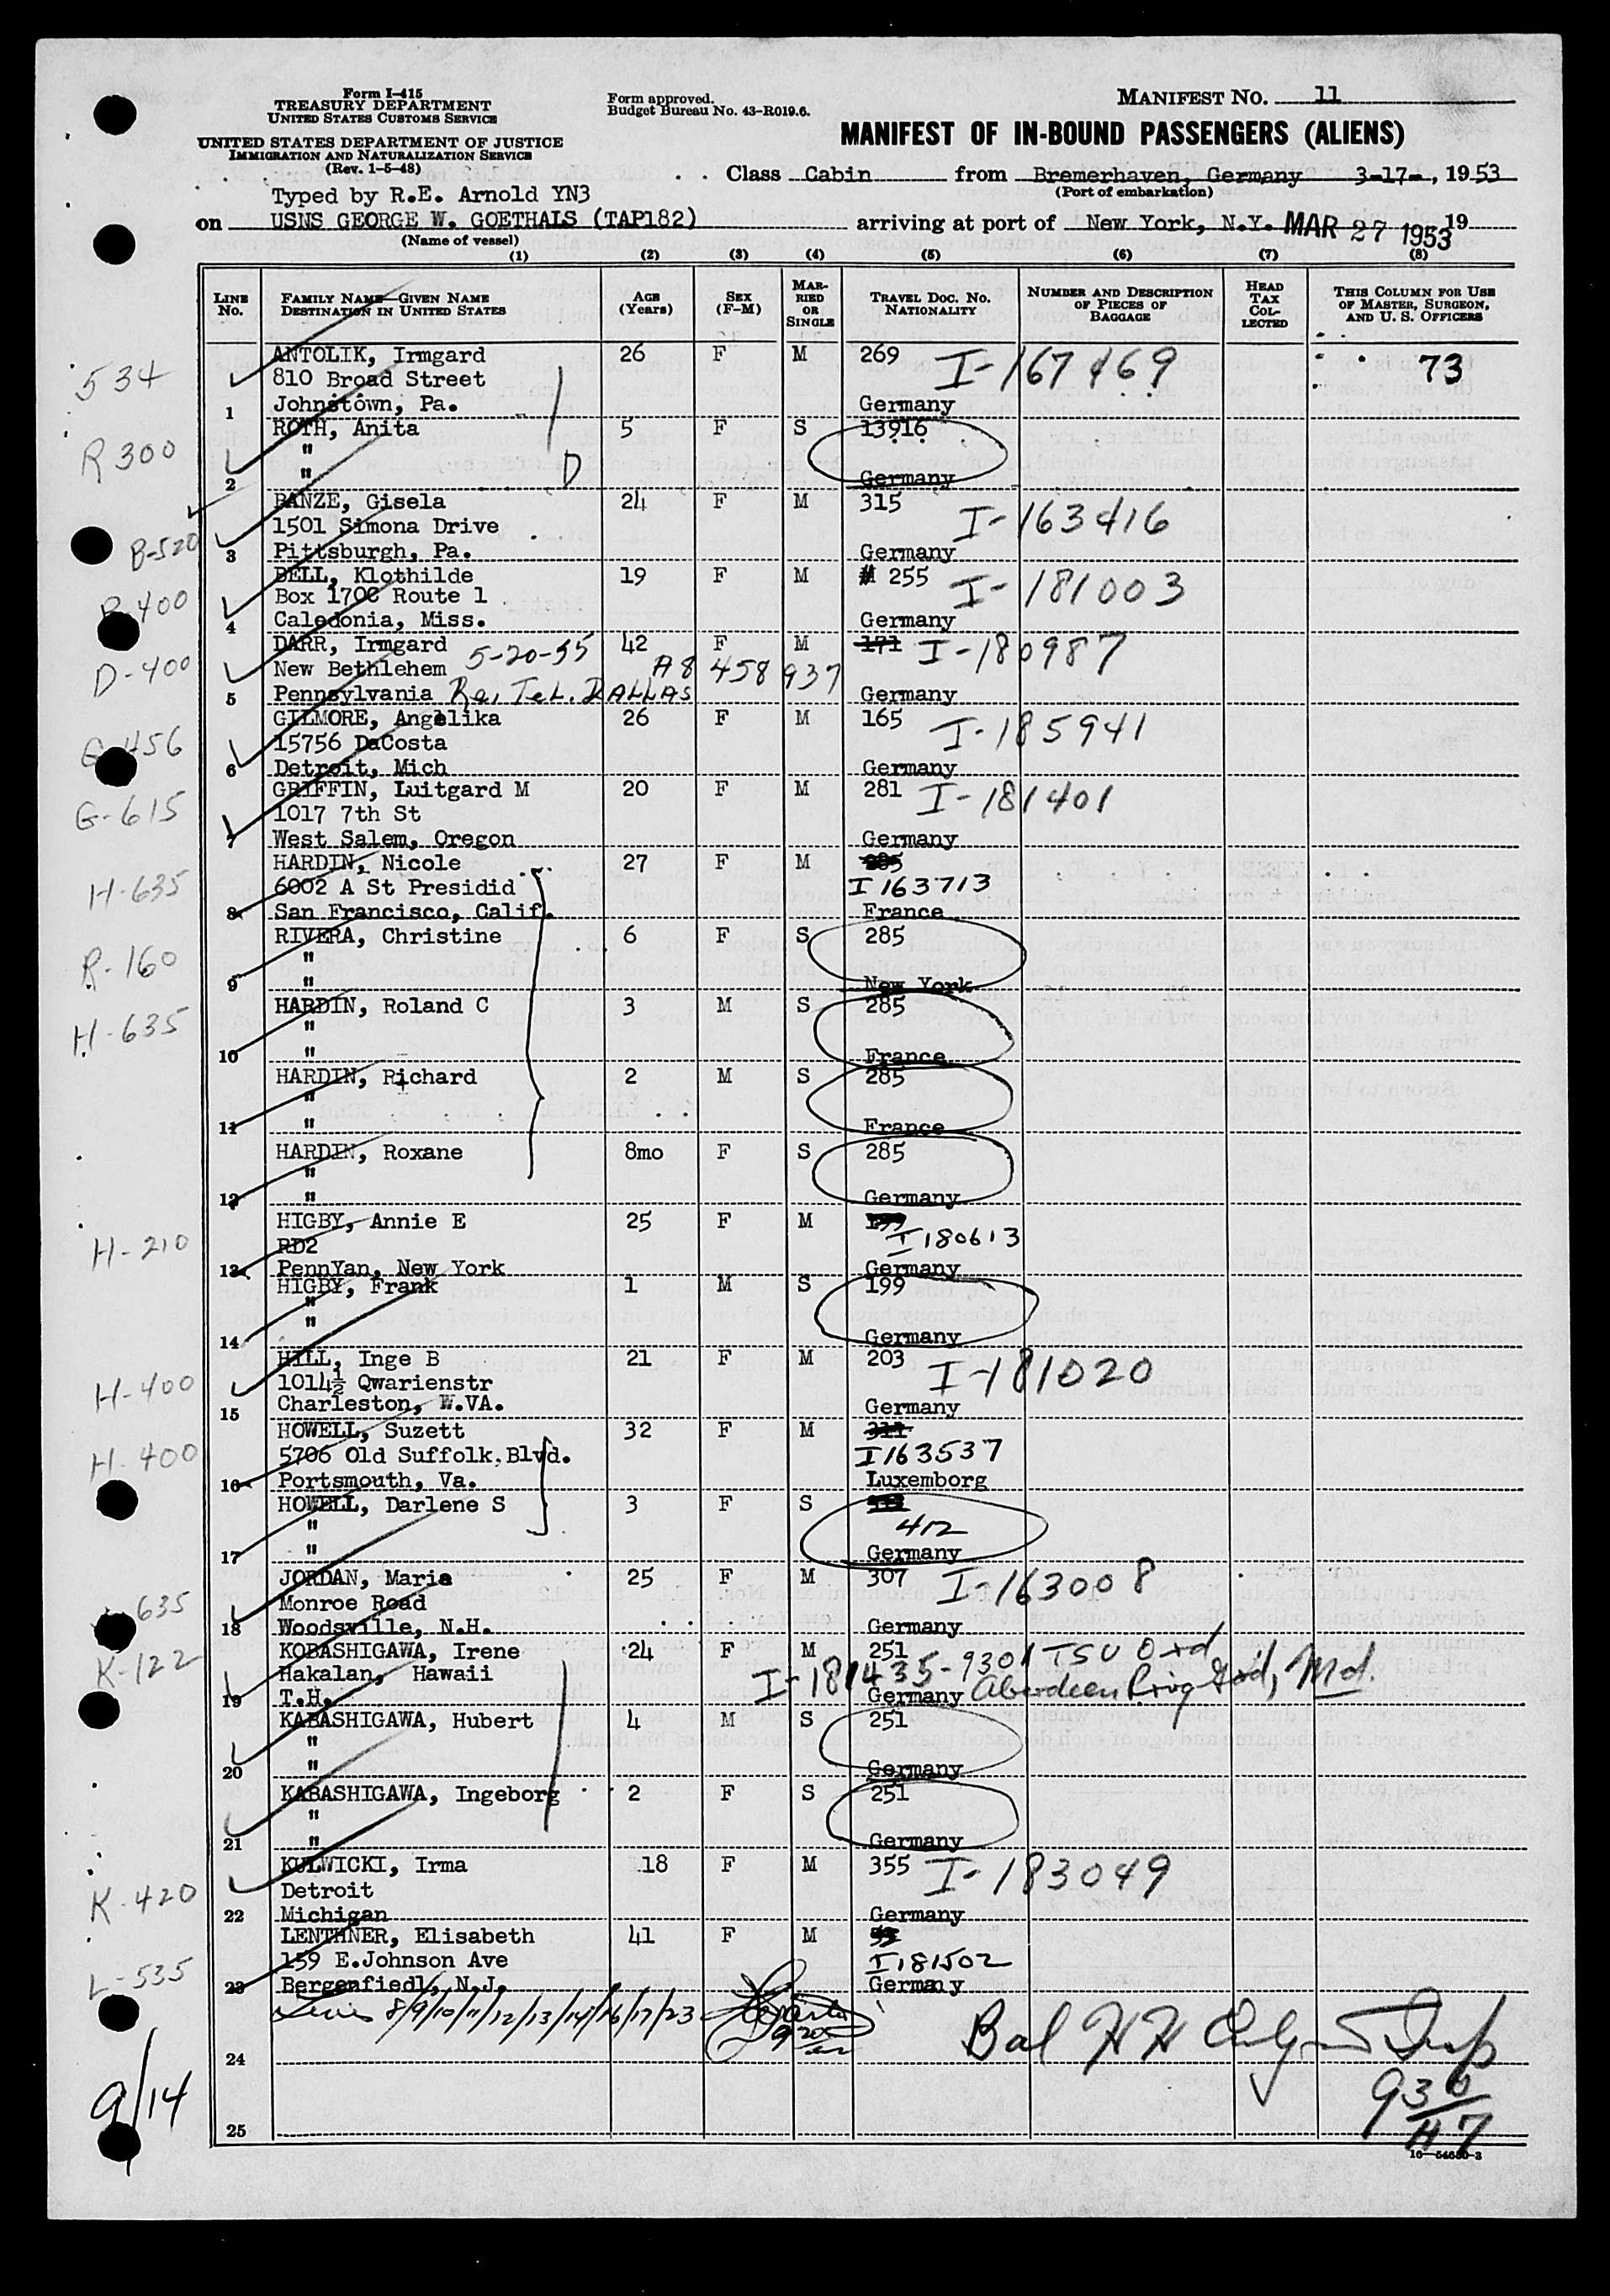 Form I-415
TREASURY DEPARTMENT
UNITED STATES CUSTOMS SERVICE
UNITED STATES DEPARTMENT OF JUSTICE
IMMIGRATION AND NATURALIZATION SERVICE
(Rev. 1-5-48)
Form approved.
Budget Bureau No. 43-R019.6.
MANIFEST NO. 11
MANIFEST OF IN-BOUND PASSENGERS (ALIENS)
Class Cabin from Bremerhaven, Germany 3-17-, 1953
(Port of embarkation)
Typed by R.E. Arnold YN3
on USNS GEORGE W. GOETHALS (TAP182) arriving at port of New York, N.Y. MAR 27 1953 19
(Name of vessel)
(1) (2) (3) (4) (5) (6) (7) (8)
LINE NO. FAMILY NAME—GIVEN NAME DESTINATION IN UNITED STATES AGE (Years) SEX (F-M) MARRIED OR SINGLE TRAVEL DOC. NO. NATIONALITY NUMBER AND DESCRIPTION OF PIECES OF BAGGAGE HEAD TAX COLLECTED THIS COLUMN FOR USE OF MASTER, SURGEON, AND U. S. OFFICERS
534 ANTOLIK, Irmgard 26 F M 269 I-167469 73
810 Broad Street
1 Johnstown, Pa. Germany
R300 ROTH, Anita 5 F S 13916
"
2 " D Germany
BANZE, Gisela 24 F M 315 I-163416
1501 Simona Drive
B-520 3 Pittsburgh, Pa. Germany
B-400 BELL, Klothilde 19 F M # 255 I-181003
Box 170C Route 1
4 Caledonia, Miss. Germany
DARR, Irmgard 42 F M 171 I-180987
D-400 New Bethlehem 5-20-55 A8 458 937
5 Pennsylvania Re. Tel. DALLAS Germany
GILMORE, Angelika 26 F M 165 I-185941
G-456 15756 DaCosta
6 Detroit, Mich Germany
G-615 GRIFFIN, Luitgard M 20 F M 281 I-181401
1017 7th St
7 West Salem, Oregon Germany
HARDIN, Nicole 27 F M 285
H-635 6002 A St Presidid I 163713
8 San Francisco, Calif. France
RIVERA, Christine 6 F S 285
R-160 "
9 " New York
HARDIN, Roland C 3 M S 285
H-635 "
10 " France
HARDIN, Richard 2 M S 285
"
11 " France
HARDIN, Roxane 8mo F S 285
"
12 " Germany
HIGBY, Annie E 25 F M
H-210 RD2 I 180613
13 PennYan, New York Germany
HIGBY, Frank 1 M S 199
"
14 " Germany
HILL, Inge B 21 F M 203 I-181020
H-400 1014½ Qwarienstr
15 Charleston, W.VA. Germany
HOWELL, Suzett 32 F M 311
H-400 5706 Old Suffolk Blvd. I 163537
16 Portsmouth, Va. Luxemborg
HOWELL, Darlene S 3 F S
" 412
17 " Germany
JORDAN, Marie 25 F M 307 I-163008
635 Monroe Road
18 Woodsville, N.H. Germany
KOBASHIGAWA, Irene 24 F M 251 9301 TSU Ord
K-122 Hakalan, Hawaii I-181435-
19 T.H. Germany Aberdeen Prvg Grd, Md.
KABASHIGAWA, Hubert 4 M S 251
"
20 " Germany
KABASHIGAWA, Ingeborg 2 F S 251
"
21 " Germany
KULWICKI, Irma 18 F M 355 I-183049
K-420 Detroit
22 Michigan Germany
LENTHNER, Elisabeth 41 F M
L-535 159 E.Johnson Ave I 181502
23 Bergenfiedl, N.J. Germany
8/9/10/11/12/13/14/16/17/23
24 Bal
9/14
25 930/H7
16—54650-3